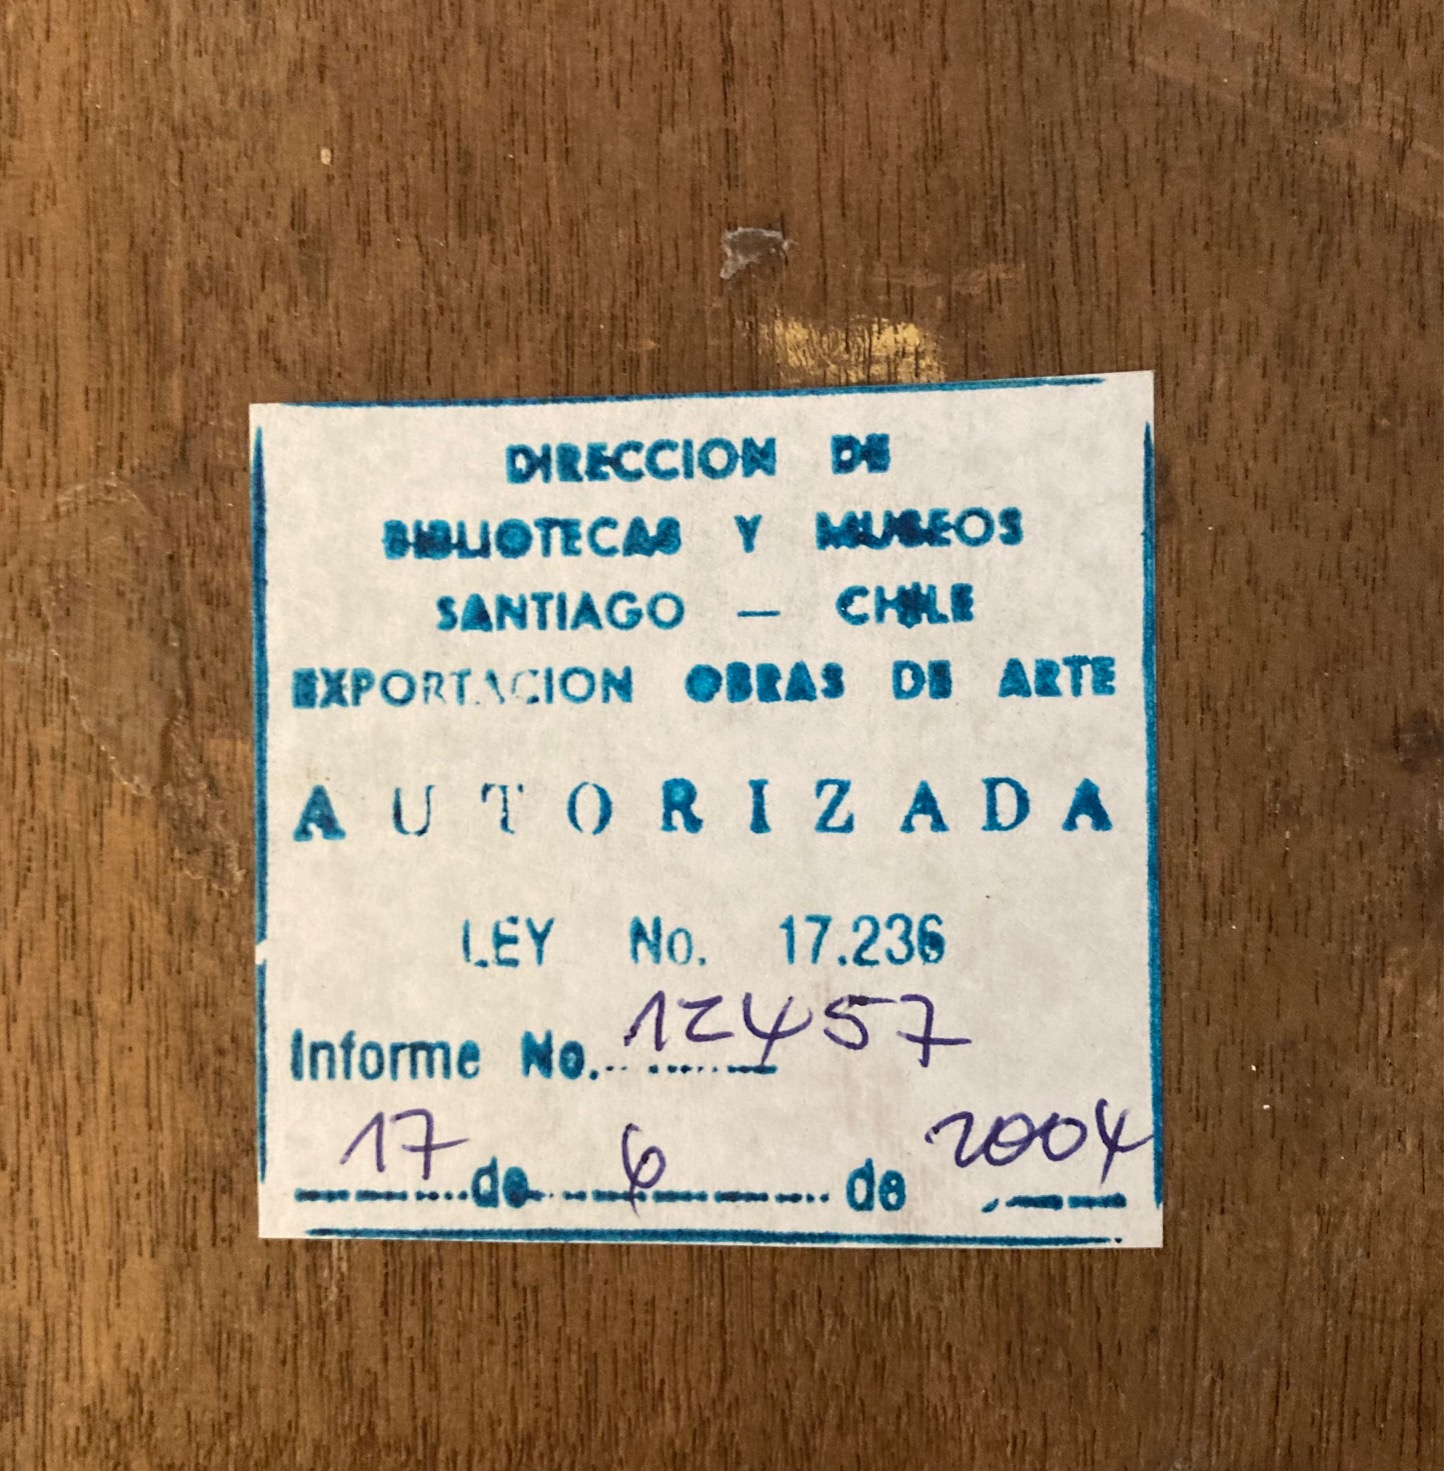 DIRECCION DE
BIBLIOTECAS Y MUSEOS
SANTIAGO — CHILE
EXPORTACION OBRAS DE ARTE
AUTORIZADA
LEY No. 17.236
Informe No. 12457
17 de 6 de 2004